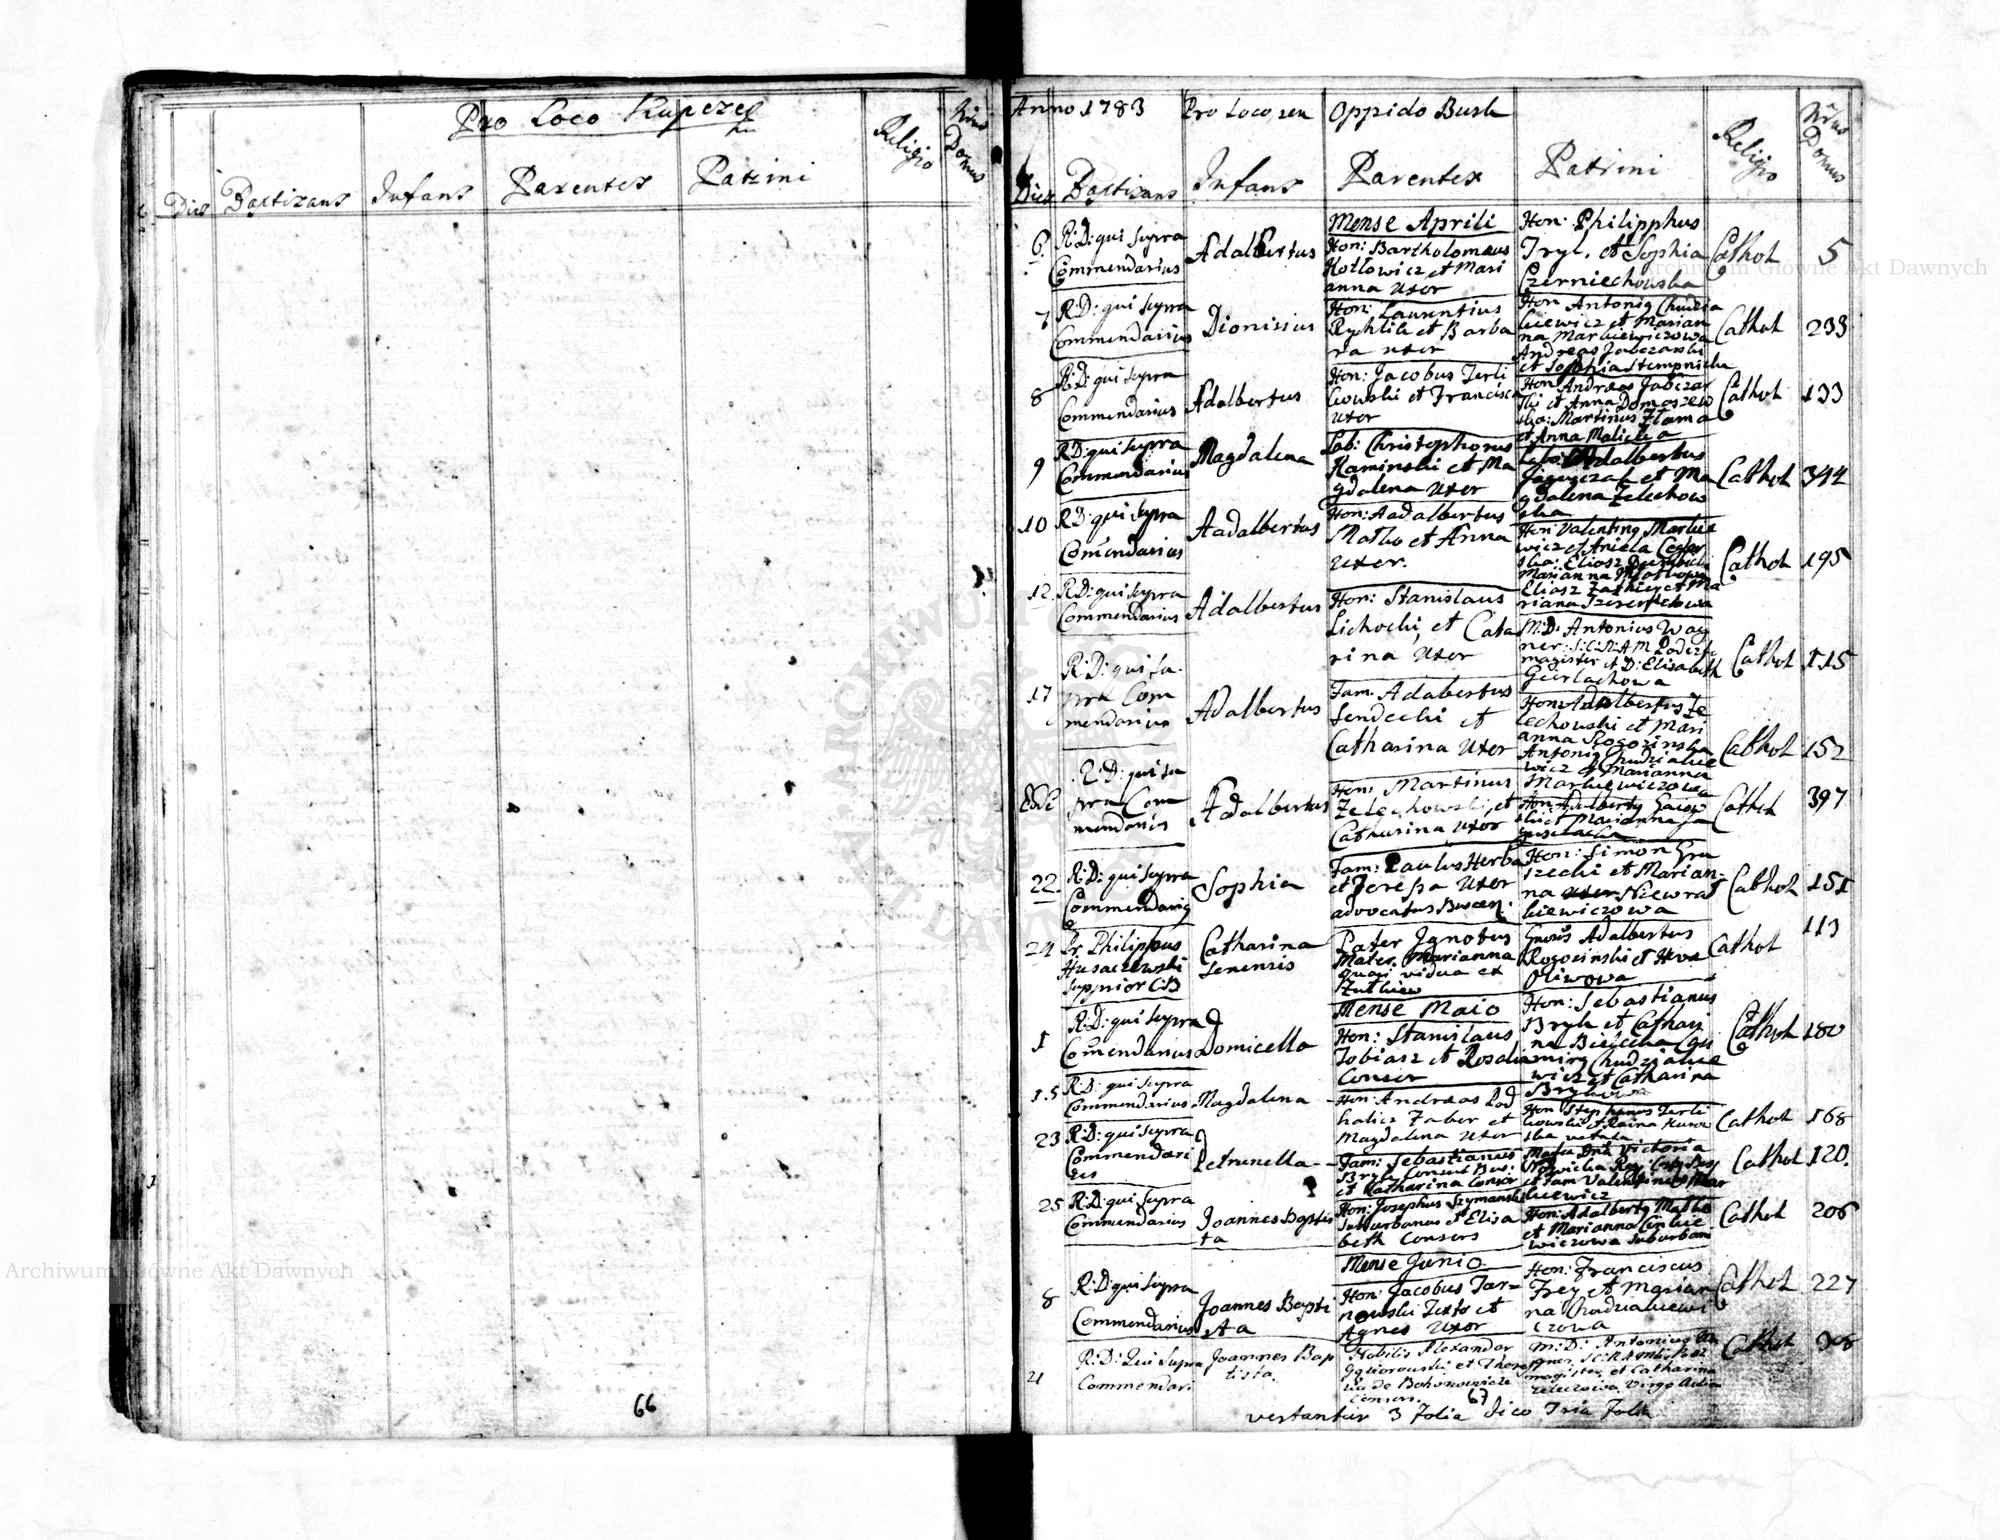 Pro Loco Kupcze
Dies Baptizans Infans Parentes Patrini Religio Nrus Domus
66
Anno 1783 Pro Loco seu Oppido Busk
Dies Baptizans Infans Parentes Patrini Religio Nrus Domus
Mense Aprili
6. R:D: qui supra
Commendarius
Adalbertus
Hon: Bartholomæus
Kotlowicz et Mari
anna Uxor
Hon: Philipphus
Tryl. et Sophia
Czerniechowska
Cathol 5
7 R:D: qui supra
Commendarius
Dionisius
Hon: Laurentius
Rychlik et Barba
ra uxor
Hon Antonig Chudzia
kiewicz et Marian
na Markiewiczowa
Andreas Jabczanski
et Sophia Stempnicka
Cathol 233
8 R:D: qui supra
Commendarius
Adalbertus
Hon: Jacobus Terli
kowski et Francisca
Uxor
Hon Andreas Jabczan
ski et Anna Domaszew
ska: Martinus Zlama
et Anna Malicka
Cathol 133
9 R:D: qui supra
Commendarius
Magdalena
Lab: Christophorus
Kaminski et Ma
gdalena Uxor
Adalbertus
et Ma
gdalena Zelechow
ska
Cathol 344
10 R:D: qui supra
Com̄endarius
Aadalbertus
Hon: Aadalbertus
Matko et Anna
Uxor.
Hon: Valenting Markie
wicz et Aniela
Cathol 195
12. R:D: qui supra
Commendarius
Adalbertus
Hon: Stanislaus
Lichocki, et Cata
rina Uxor
M:D: Antonius Wag
ner:
magister et D: Elisabeth
Gerlachowa
Cathol 115
17 R:D: qui su
pra Com
mendarius
Adalbertus
Fam: Adabertus
Sendecki et
Catharina Uxor
Hon: Adalbertus Ze
lechowski et Mari
anna Rogozinska
Antonig Chudziakie
wicz et Marianna
Markiewiczowa
Cathol 152
R:D: qui su
pra Com
mendaris
Adalbertus
Hon: Martinus
Zelechowski, et
Catharina Uxor
Hon: Adalbertg
et Marianna
Cathol 397
22. R:D: qui supra
Commendarig
Sophia
Fam: Paulus Herba
et Teresa Uxor
advocatus Buscen:
Hon: Simon Gru
szecki et Marian
na Uxor Niewrat
kiewiczowa
Cathol 151
24 Pr. Philippus
Husaczewski
Suppnior C:B
Catharina
Senensis
Pater Ignotus
Mater Marianna
quasi vidua ex
Zulkiew
Gnosus Adalbertus
Rogozinski et Heva
Oliwowa
Cathol 113
Mense Maio
1 R:D: qui supra
Com̄endarius
Domicella
Hon: Stanislaus
Tobiasz et Rosalia
Consor
Hon: Sebastianus
Bryk et Cathari
na Bielecka Casi
mirg Chudziakie
wicz et Catharina
Brykowa
Cathol 180
15 R:D: qui supra
Commendarius
Magdalena
Hon: Andreas Pod
halicz Faber et
Magdalena Uxor
Hon Stephanus Terli
kowski et Raina Kurow
ska vetula
Cathol 168
23 R:D: qui supra
Commendari
us
Petrunella
Fam: Sebastianus
Bryk Consul Bus:
et Katharina Consor
Victoria
et Fam Valentinus Mar
kiewicz
Cathol 120.
25 R:D: qui supra
Commendarius
Joannes Baptis
ta
Hon: Josephus Szymanski
Suburbanus et Elisa
beth Consors
Hon: Adalbertg Matko
et Marianna
wiczowa Suburbani
Cathol 206
Mense Junio
8 R:D: qui supra
Commendarius
Joannes Bapti
sta
Hon: Jacobus Tar-
nowski Textor et
Agnes Uxor
Hon: Franciscus
Frey et Marian
na Chudziakiewi
czowa
Cathol 227
21 R:D: Qui Supra
Commendari
Joannes Bap
tista
Nobilis Alexander
et There
sia de
Consors.
M:D: Antonius Wa
gner
magister et Catharina
Virgo
Cathol
67
vertantur 3 Folia dico Tria Folia
Archiwum Główne Akt Dawnych
Archiwum Główne Akt Dawnych